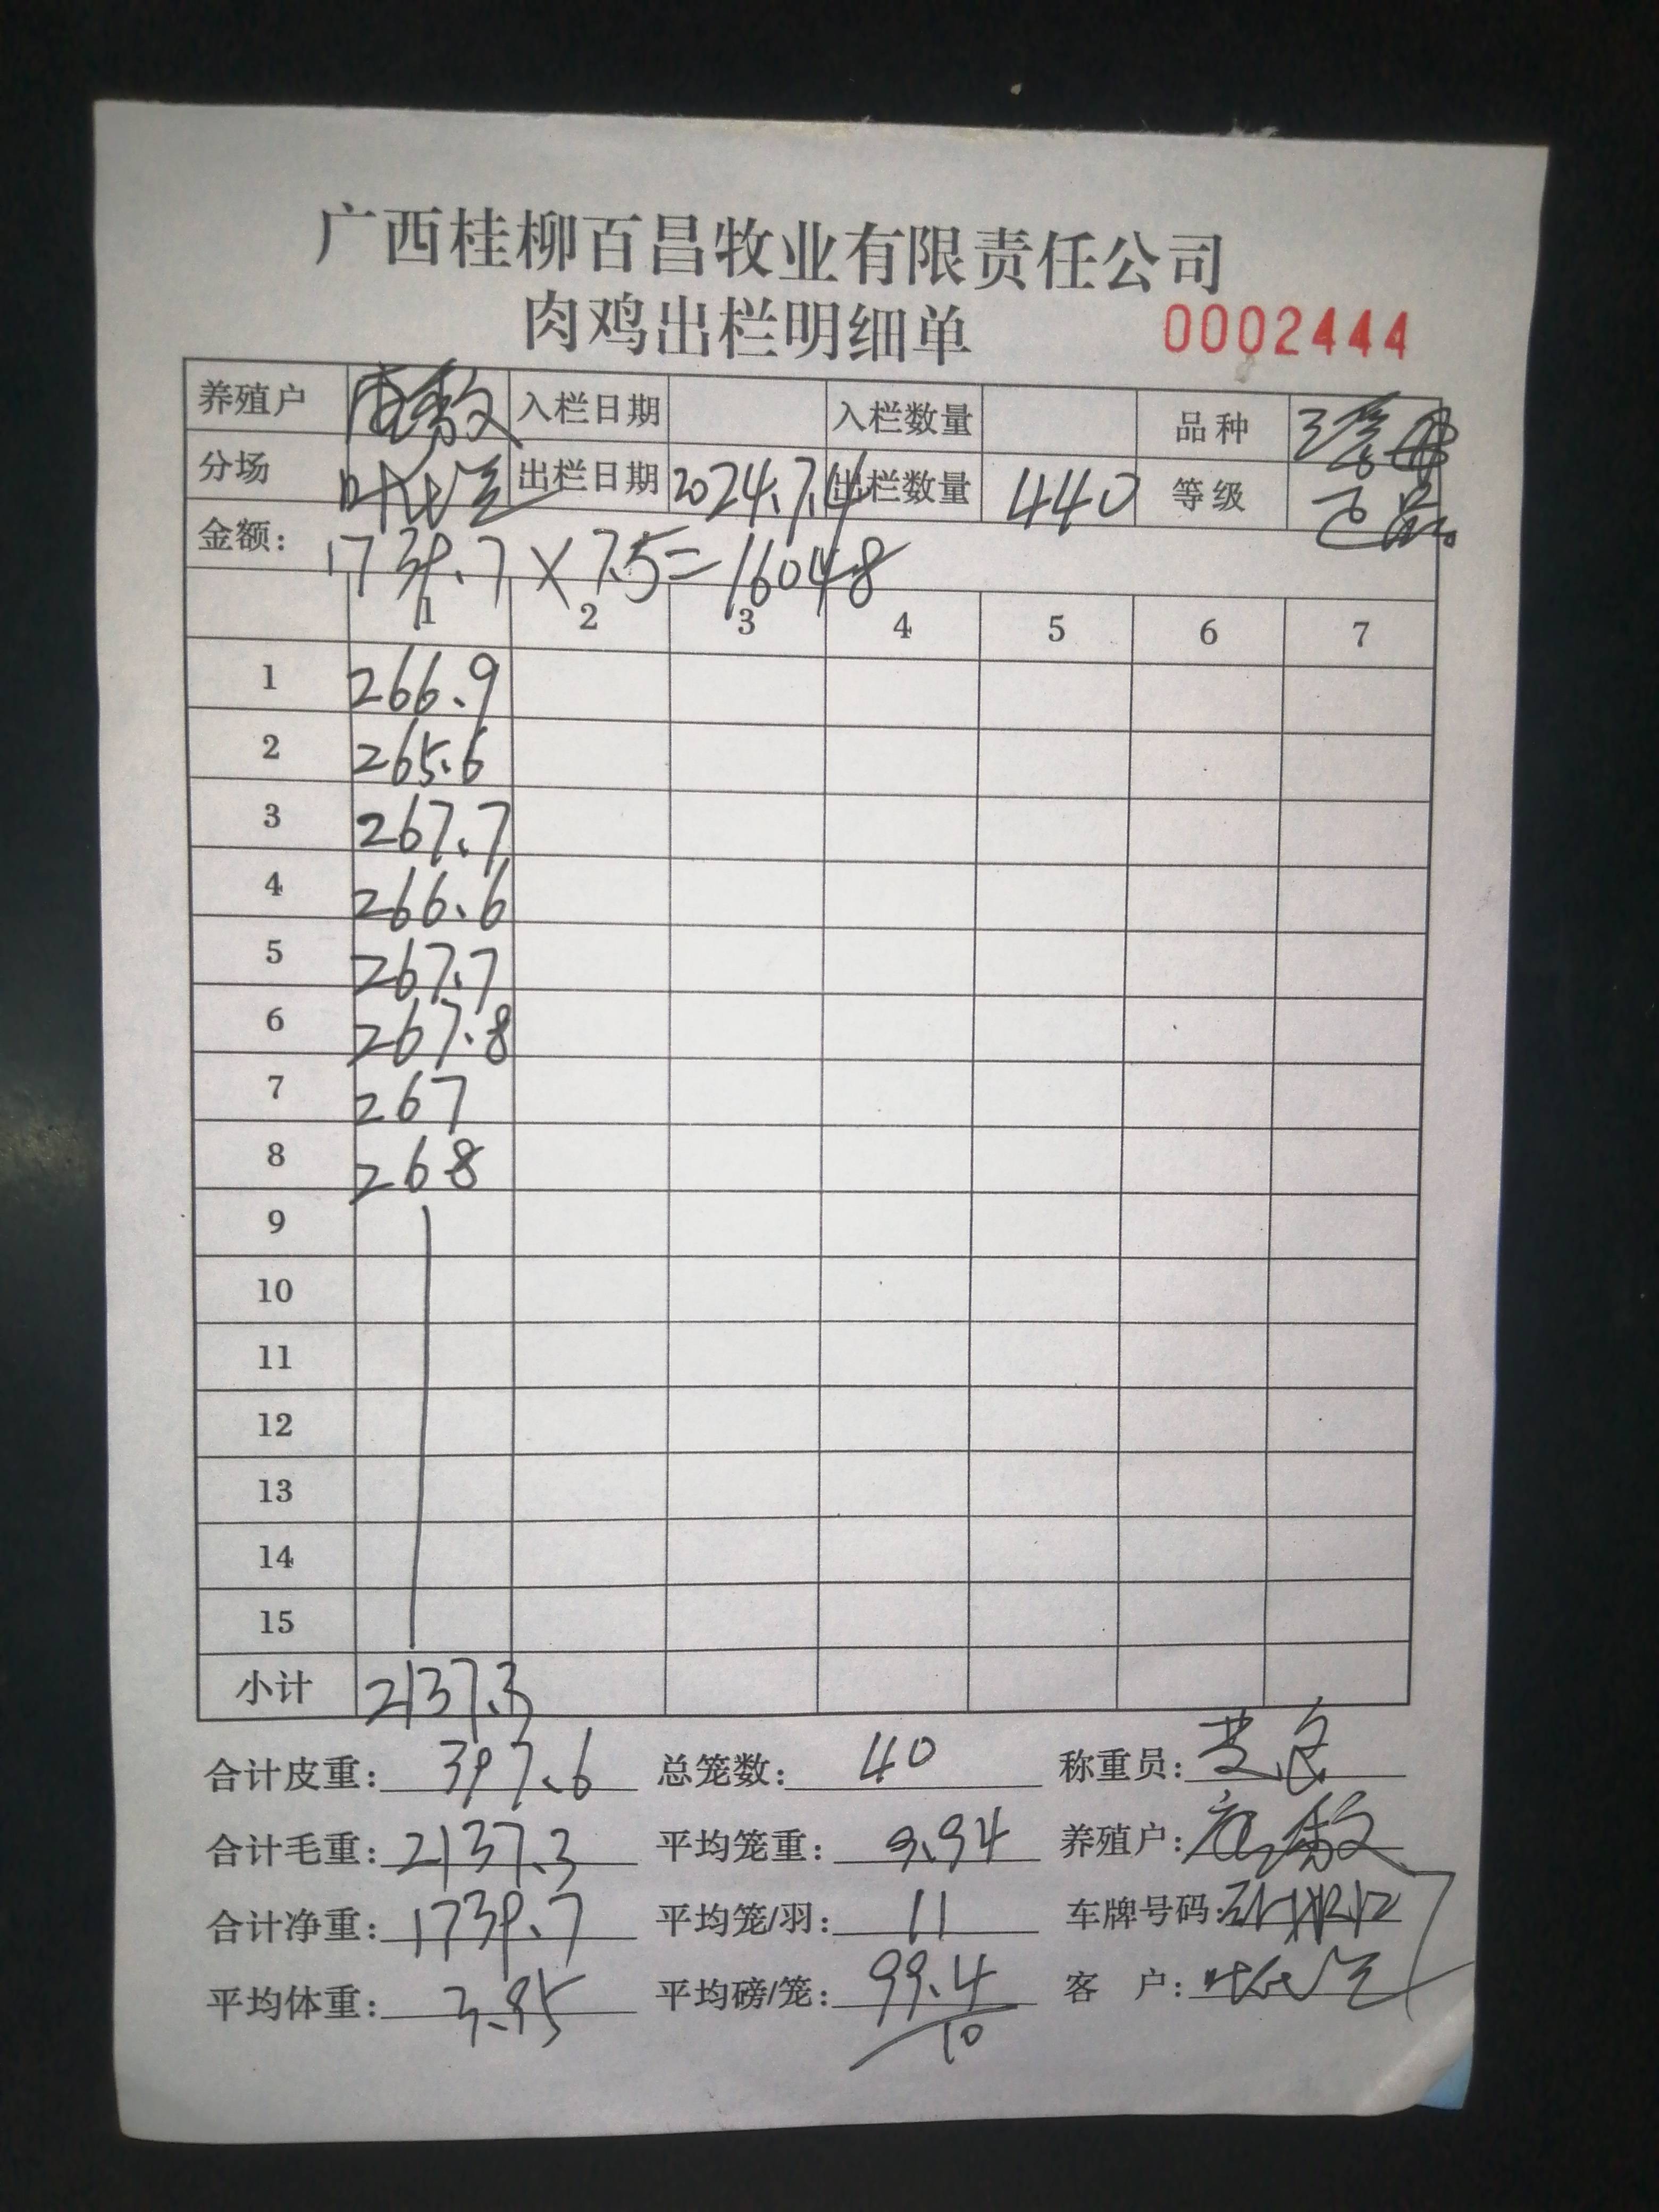 广西桂柳百昌牧业有限责任公司
肉鸡出栏明细单 0002444
养殖户 入栏日期 入栏数量 品种
分场 出栏日期 2024.7.4 出栏数量 440 等级
金额: 1739.7×7.5=16048
1 2 3 4 5 6 7
1 266.9
2 265.6
3 267.7
4 266.6
5 267.7
6 267.8
7 267
8 268
9
10
11
12
13
14
15
小计 2137.3
合计皮重: 397.6 总笼数: 40 称重员:
合计毛重: 2137.3 平均笼重: 9.94 养殖户:
合计净重: 1739.7 平均笼/羽: 11 车牌号码:
平均体重: 3.95 平均磅/笼: 99.4 客 户:
10